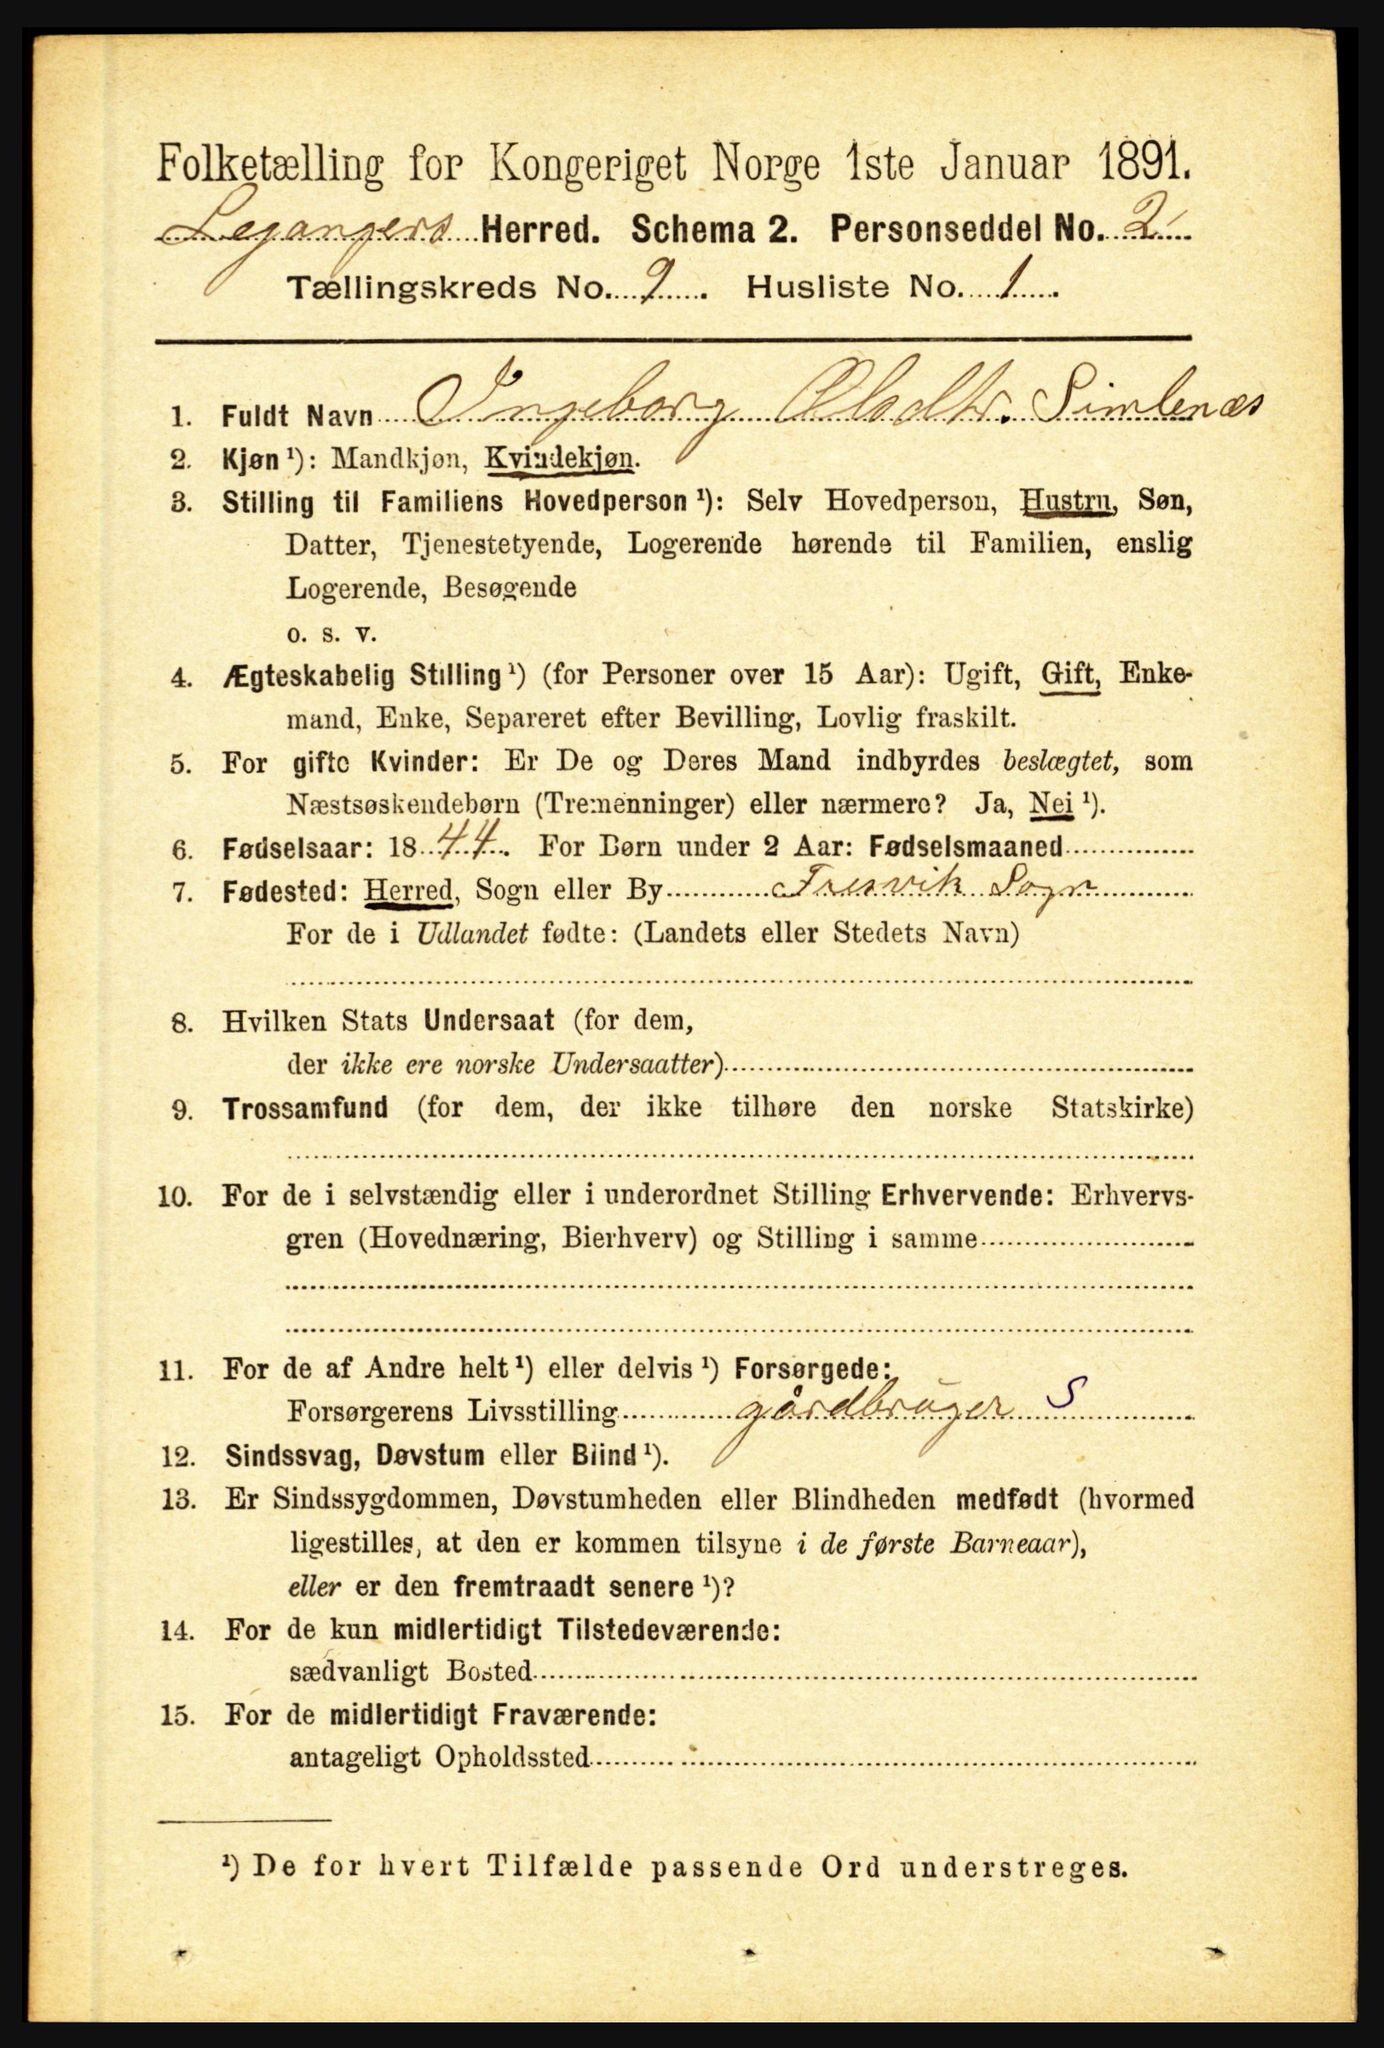 Folketælling for Kongeriget Norge 1ste Januar 1891.
Legangers Herred. Schema 2. Personseddel No. 2
Tællingskreds No. 9. Husliste No. 1.
1. Fuldt Navn Ingeborg Olsdtr. Simlenæs
2. Kjøn ¹): Mandkjøn, Kvindekjøn.
3. Stilling til Familiens Hovedperson ¹): Selv Hovedperson, Hustru, Søn,
Datter, Tjenestetyende, Logerende hørende til Familien, enslig
Logerende, Besøgende
o. s. v.
4. Ægteskabelig Stilling ¹) (for Personer over 15 Aar): Ugift, Gift, Enke-
mand, Enke, Separeret efter Bevilling, Lovlig fraskilt.
5. For gifte Kvinder: Er De og Deres Mand indbyrdes beslægtet, som
Næstsøskendebørn (Tremenninger) eller nærmere? Ja, Nei ¹).
6. Fødselsaar: 1844. For Børn under 2 Aar: Fødselsmaaned
7. Fødested: Herred, Sogn eller By Fresvik Sogn
For de i Udlandet fødte: (Landets eller Stedets Navn)
8. Hvilken Stats Undersaat (for dem,
der ikke ere norske Undersaatter)
9. Trossamfund (for dem, der ikke tilhøre den norske Statskirke)
10. For de i selvstændig eller i underordnet Stilling Erhvervende: Erhvervs-
gren (Hovednæring, Bierhverv) og Stilling i samme
11. For de af Andre helt ¹) eller delvis ¹) Forsørgede:
Forsørgerens Livsstilling gårdbrüger S
12. Sindssvag, Døvstum eller Blind ¹).
13. Er Sindssygdommen, Døvstumheden eller Blindheden medfødt (hvormed
ligestilles, at den er kommen tilsyne i de første Barneaar),
eller er den fremtraadt senere ¹)?
14. For de kun midlertidigt Tilstedeværende:
sædvanligt Bosted
15. For de midlertidigt Fraværende:
antageligt Opholdssted
¹) De for hvert Tilfælde passende Ord understreges.